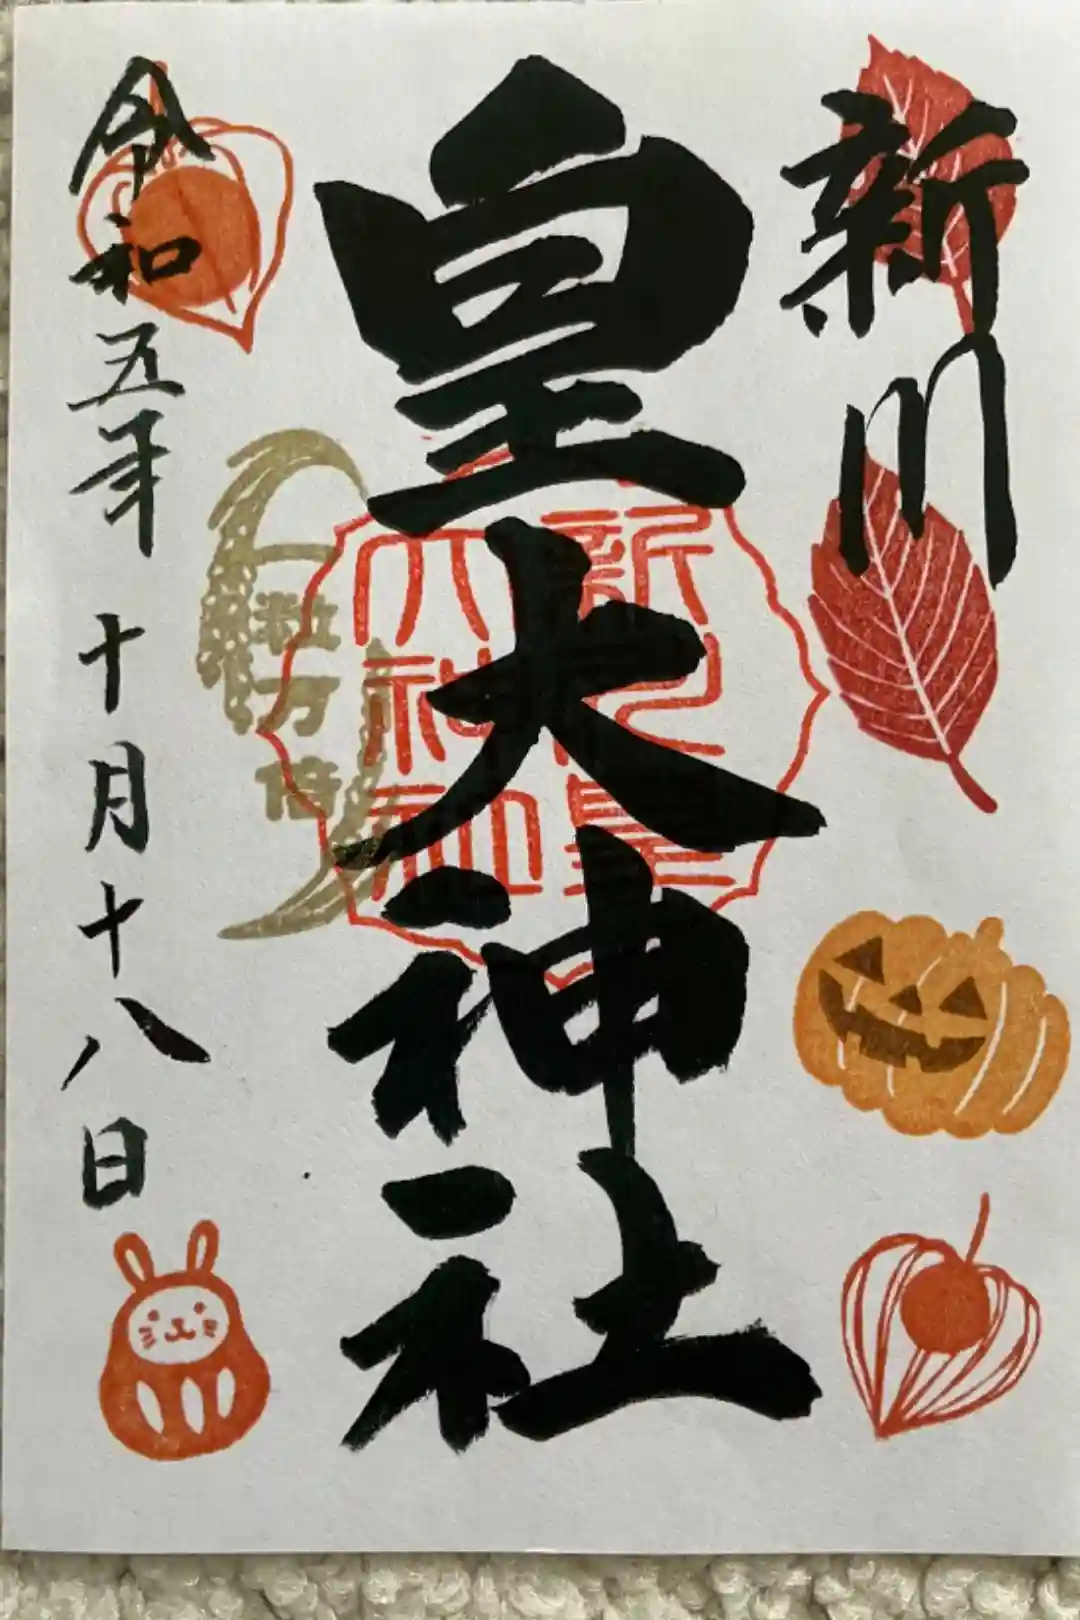 新川
皇大神社
新川皇
大神社
一粒万倍
令和五年 十月十八日